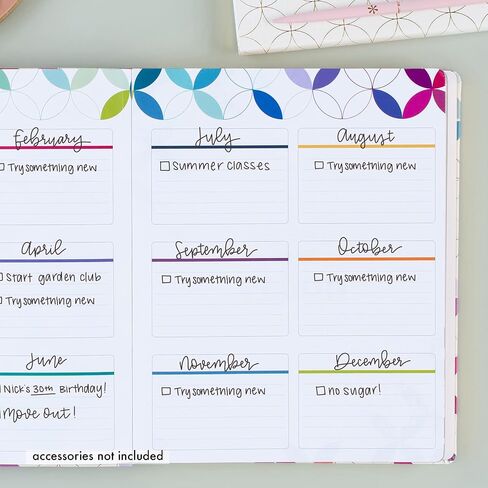 February
Try something new
July
Summer classes
August
Try something new
April
Start garden club
Try something new
September
Try something new
October
Try something new
June
Nick's 30th Birthday!
Move Out!
November
Try something new
December
no sugar!
accessories not included